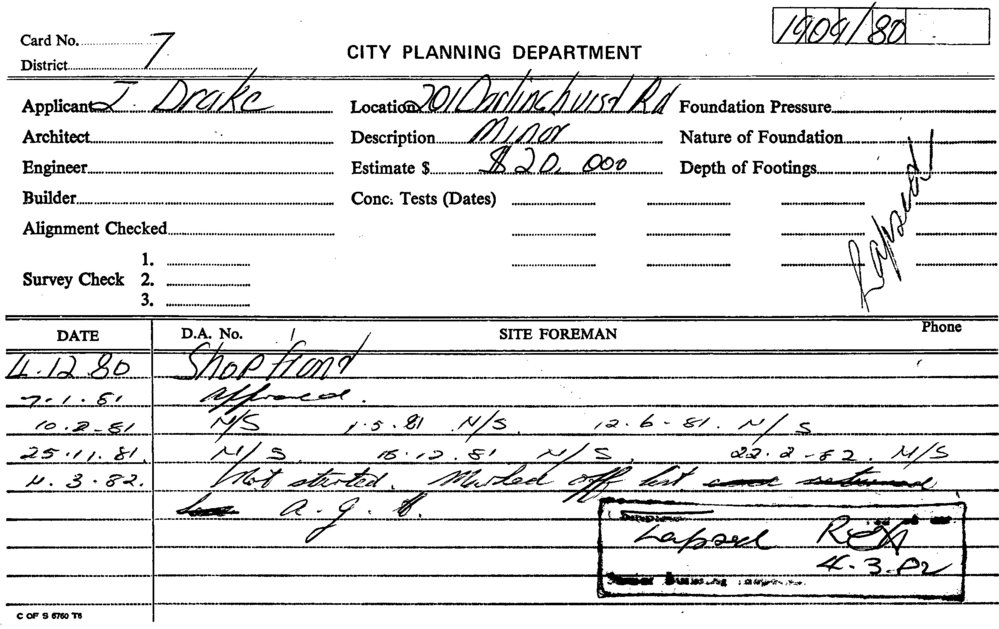 1909/80
Card No. 7
District
CITY PLANNING DEPARTMENT
Applicant J. Drake
Location 201 Darlinghurst Rd
Foundation Pressure
Architect
Description Minor
Nature of Foundation
Engineer
Estimate $ $20,000
Depth of Footings
Builder
Conc. Tests (Dates)
Alignment Checked
Lapsed
Survey Check 1.
2.
3.
DATE D.A. No. SITE FOREMAN Phone
4.12.80 Shop front
7.1.81 approved.
10.2-81 N/S 1.5.81 N/S 12.6-81. N/S
25.11.81. N/S. 15.12.81 N/S. 22.2-82. N/S
4.3.82. Not started. Marked off list and returned
a.g.
Lapsed
4.3.82
C OF S 6760 T6